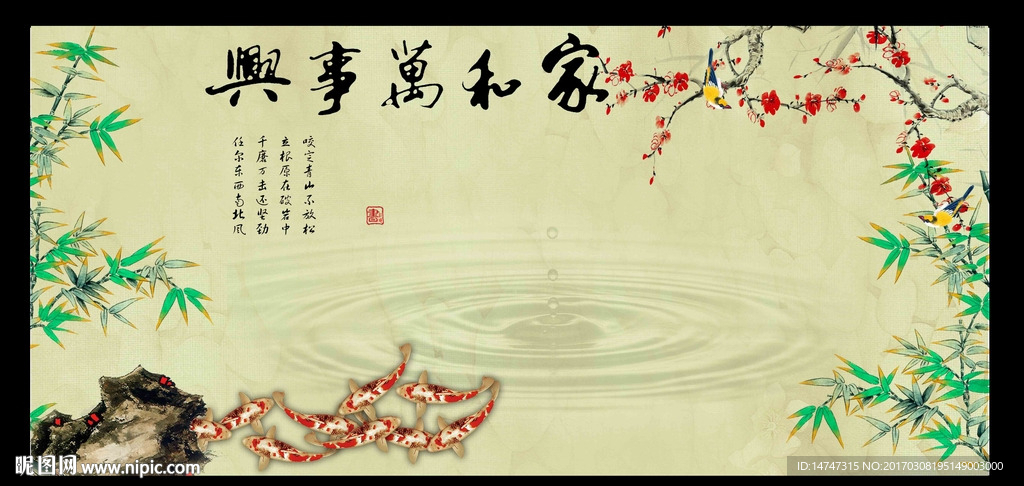 家和萬事興
咬定青山不放松
立根原在破岩中
千磨万击还坚劲
任尔东西南北风
昵图网 www.nipic.com
ID:14747315 NO:20170308195149003000